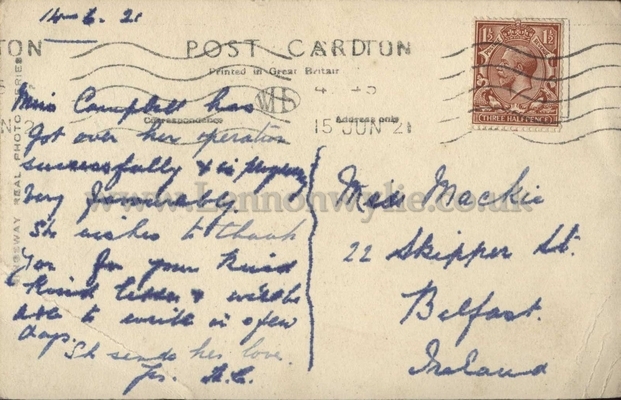 14-6-21
POST CARD
TON
Printed in Great Britain
4. 45
15 JUN 21
Correspondence
Address only
KINGSWAY REAL PHOTO SERIES
THREE HALFPENCE
1½ 1½
Miss Campbell has
got over her operation
successfully & is
very favourably.
She wishes to thank
you for your kind
kind letter & will be
able to write in a few
days.
She sends her love.
Yrs.
Miss Mackie
22 Skipper St.
Belfast.
Ireland
www.Lennonwylie.co.uk